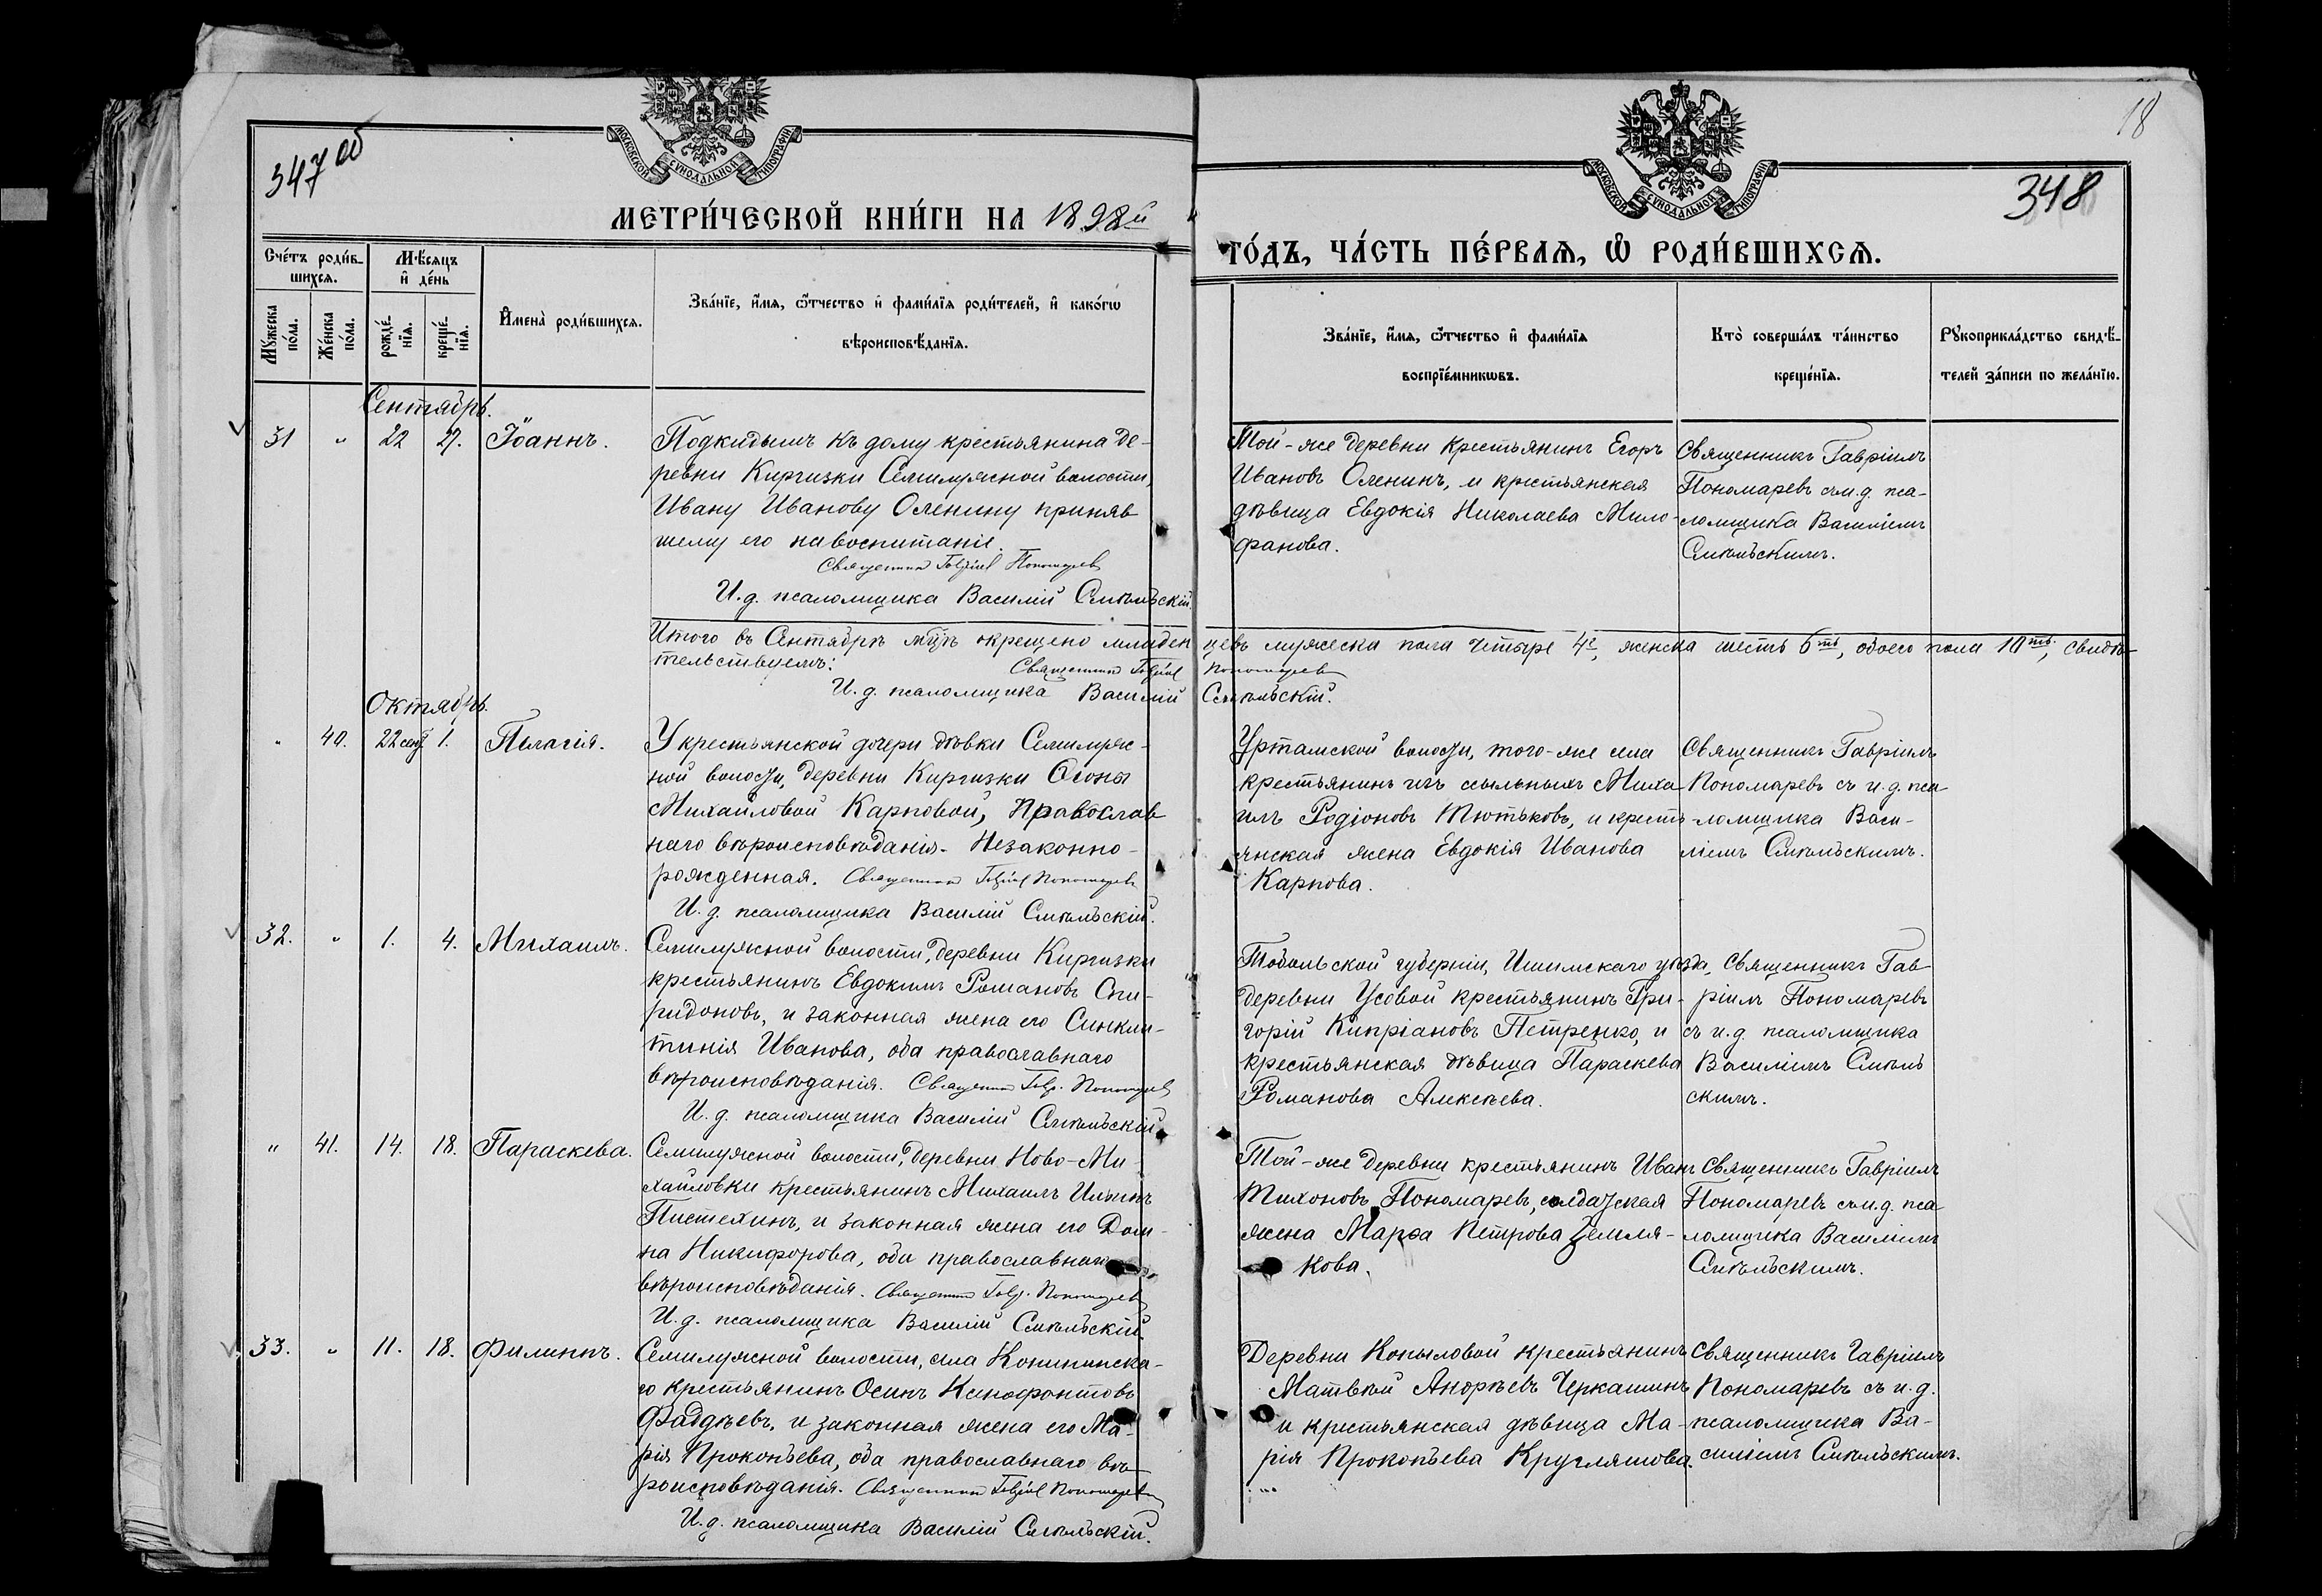 347 об
18
348
МОСКОВСКОЙ СѴНОДАЛЬНОЙ ТИПОГРАФІИ
МОСКОВСКОЙ СѴНОДАЛЬНОЙ ТИПОГРАФІИ
МЕТРИ́ЧЕСКОЙ КНИ́ГИ НА 1898й
ГО́ДЪ, ЧА́СТЬ ПЕ́РВАѦ, Ѿ РОДИ́ВШИХСѦ.
Сче́тъ роди́в-
шихсѧ.
Мꙋ́жеска
по́ла.
Же́нска
по́ла.
Мѣ́сѧцъ
и҆ де́нь
рожде́-
нїѧ.
креще́-
нїѧ.
И҆мена̀ роди́вшихсѧ.
Зва́нїе, и҆́мѧ, ѻ҆́тчество и҆ фами́лїѧ роди́телей, и҆ како́гѡ
вѣроисповѣ́данїѧ.
Зва́нїе, и҆́мѧ, ѻ҆́тчество и҆ фами́лїѧ
воспрїе́мникѡвъ.
Кто̀ соверша́лъ та́инство
креще́нїѧ.
Рꙋкоприкла́дство свидѣ́-
телей за́писи по жела́нїю.
Сентябрь.
31 " 22 27. Іоаннъ.
Подкидышъ къ дому крестьянина де-
ревни Киргизки Семилужной волости,
Ивану Иванову Оленину приняв
шему его навоспитаніе.
Священникъ Гавріилъ Пономаревъ
И. д. псаломщика Василій Смѣльскій.
Той-же деревни крестьянинъ Егоръ
Ивановъ Оленинъ, и крестьянская
дѣвица Евдокія Николаева Мило-
фанова.
Священникъ Гавріилъ
Пономаревъ съ и.д. пса-
ломщика Василіемъ
Смѣльскимъ.
Итого въ Сентябрѣ мцѣ окрещено младен цевъ мужеска пола четыре 4е, женска шесть 6ть, обоего пола 10ть, свидѣ-
тельствуемъ: Священникъ Гавріилъ Пономаревъ
И. д. псаломщика Василій Смѣльскій.
Октябрь.
" 40. 22 сент. 1. Пелагія.
У крестьянской дочери дѣвки Семилуж-
ной волости, деревни Киргизки
Михайловой Карповой, Православ
наго вѣроисповѣданія. Незаконно-
рожденная. Священникъ Гавріилъ Пономаревъ
И. д. псаломщика Василій Смѣльскій.
Уртамской волости, того-же села
крестьянинъ изъ ссыльныхъ Миха
илъ Родіоновъ Тютьковъ, и кресть-
янская жена Евдокія Иванова
Карпова.
Священникъ Гавріилъ
Пономаревъ съ и.д. пса
ломщика Васи-
ліемъ Смѣльскимъ.
32. " 1. 4. Михаилъ.
Семилужной волости, деревни Киргизки
крестьянинъ Евдокимъ Романовъ Спи-
ридоновъ, и законная жена его Синкли-
тинія Иванова, оба православнаго
вѣроисповѣданія. Священникъ Гавр. Пономаревъ
И. д. псаломщика Василій Смѣльскій.
Тобольской губерніи, Ишимскаго уѣзда,
деревни Усовой крестьянинъ Гри-
горій Кипріановъ Петренко, и
крестьянская дѣвица Параскева
Романова Алексѣева.
Священникъ Гав
ріилъ Пономаревъ
съ и.д. псаломщика
Василіемъ Смѣль
скимъ.
" 41. 14. 18. Параскева.
Семилужной волости, деревни Ново-Ми-
хайловки крестьянинъ Михаилъ Ильинъ
Пистехинъ, и законная жена его Дом-
на Никифорова, оба православнаго
вѣроисповѣданія. Священникъ Гавр. Пономаревъ
И. д. псаломщика Василій Смѣльскій.
Той-же деревни крестьянинъ Иванъ
Тихоновъ Пономаревъ, солдатская
жена Марѳа Петрова Земля-
кова.
Священникъ Гавріилъ
Пономаревъ съ и.д. пса
ломщика Василіемъ
Смѣльскимъ.
33. " 11. 18. Филиппъ.
Семилужной волости, села Конининска-
го крестьянинъ Осипъ Ксенофонтовъ
Фаддѣевъ, и законная жена его Ма-
рія Прокопьева, оба православнаго вѣ-
роисповѣданія. Священникъ Гавріилъ Пономаревъ
И. д. псаломщика Василій Смѣльскій.
Деревни Копыловой крестьянинъ
Матвѣй Андрѣевъ Черкашинъ
и крестьянская дѣвица Ма-
рія Прокопьева Кругляшова.
Священникъ Гавріилъ
Пономаревъ съ и.д.
псаломщика Ва-
силіемъ Смѣльскимъ.